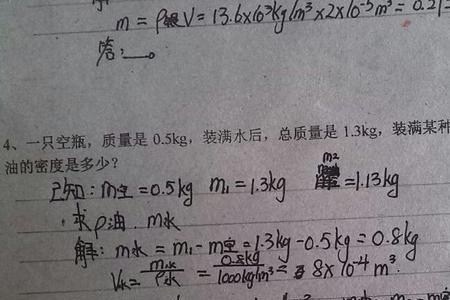 m = ρ银V = 13.6x10³kg/m³x2x10⁻⁵m³ = 0.2
答:
4、一只空瓶，质量是 0.5kg，装满水后，总质量是 1.3kg，装满某种
油的密度是多少？
已知: m空 = 0.5kg m₁ = 1.3kg m₂ = 1.13kg
求ρ油 . m水
解: m水 = m₁ - m空 = 1.3kg - 0.5kg = 0.8kg
V水 = m水/ρ水 = 0.8kg/1000kg/m³ = 8x10⁻⁴m³.